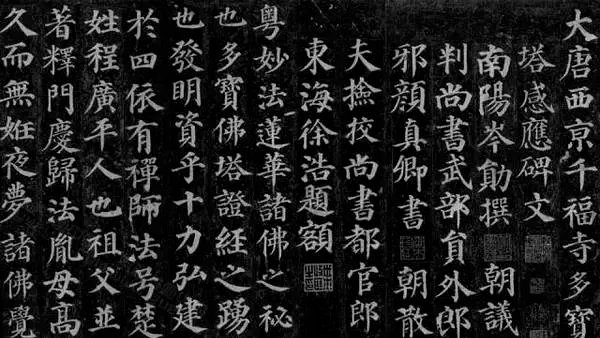 大唐西京千福寺多寶
塔感應碑文
南陽岑勛撰 朝議
判尚書武部員外郎
邪顏真卿書 朝散
夫撿挍尚書都官郎
東海徐浩題額
粵妙法蓮華諸佛之秘
也多寶佛塔證經之踴
也發明資乎十力弘建
於四依有禪師法号楚
姓程廣平人也祖父並
著釋門慶歸法胤母高
久而無姙夜夢諸佛覺